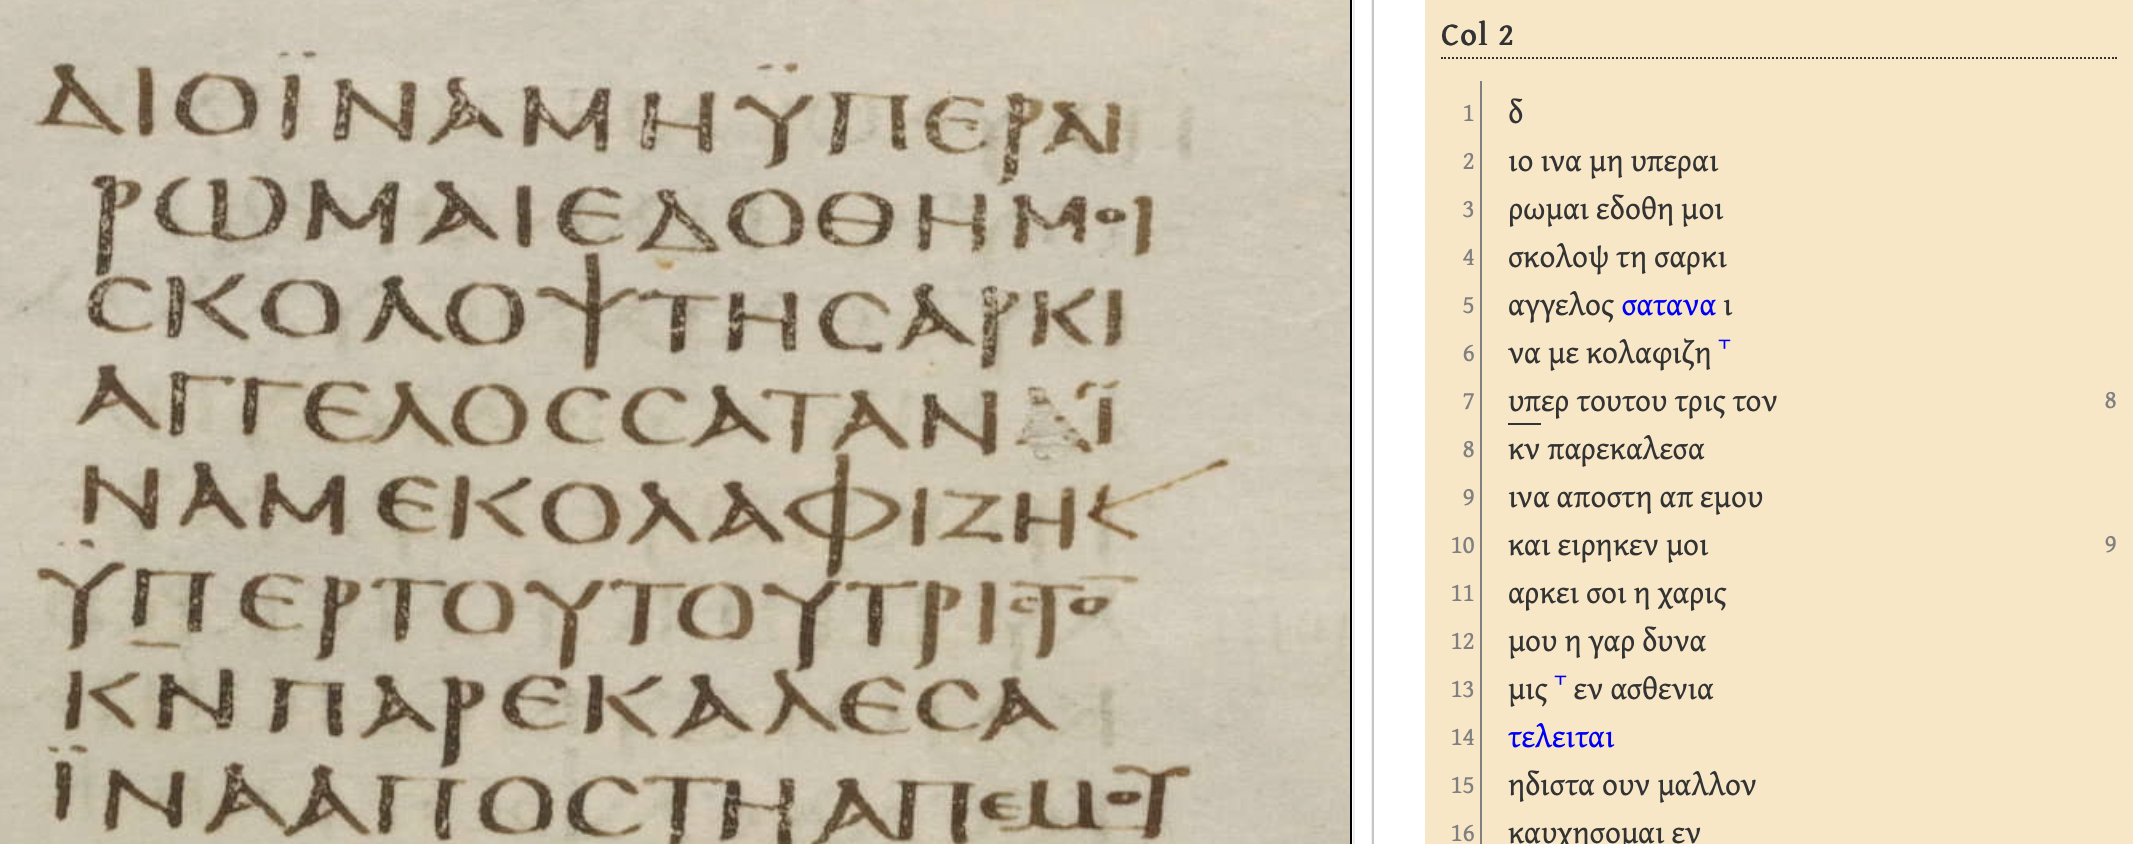 ΔΙΟΪΝΑΜΗΫΠΕΡΑΙ
ΡΩΜΑΙΕΔΟΘΗΜΟΙ
ϹΚΟΛΟΨΤΗϹΑΡΚΙ
ΑΓΓΕΛΟϹϹΑΤΑΝΑΪ
ΝΑΜΕΚΟΛΑΦΙΖΗ<
ΫΠΕΡΤΟΥΤΟΥΤΡΙϹΤΟ̅
ΚΝΠΑΡΕΚΑΛΕϹΑ
ΪΝΑΑΠΟϹΤΗΑΠΕΜΟΥ
Col 2
1 δ
2 ιο ινα μη υπεραι
3 ρωμαι εδοθη μοι
4 σκολοψ τη σαρκι
5 αγγελος σατανα ι
6 να με κολαφιζη ⸆
7 υπερ τουτου τρις τον 8
8 κν παρεκαλεσα
9 ινα αποστη απ εμου
10 και ειρηκεν μοι 9
11 αρκει σοι η χαρις
12 μου η γαρ δυνα
13 μις ⸆ εν ασθενια
14 τελειται
15 ηδιστα ουν μαλλον
16 καυχησομαι εν